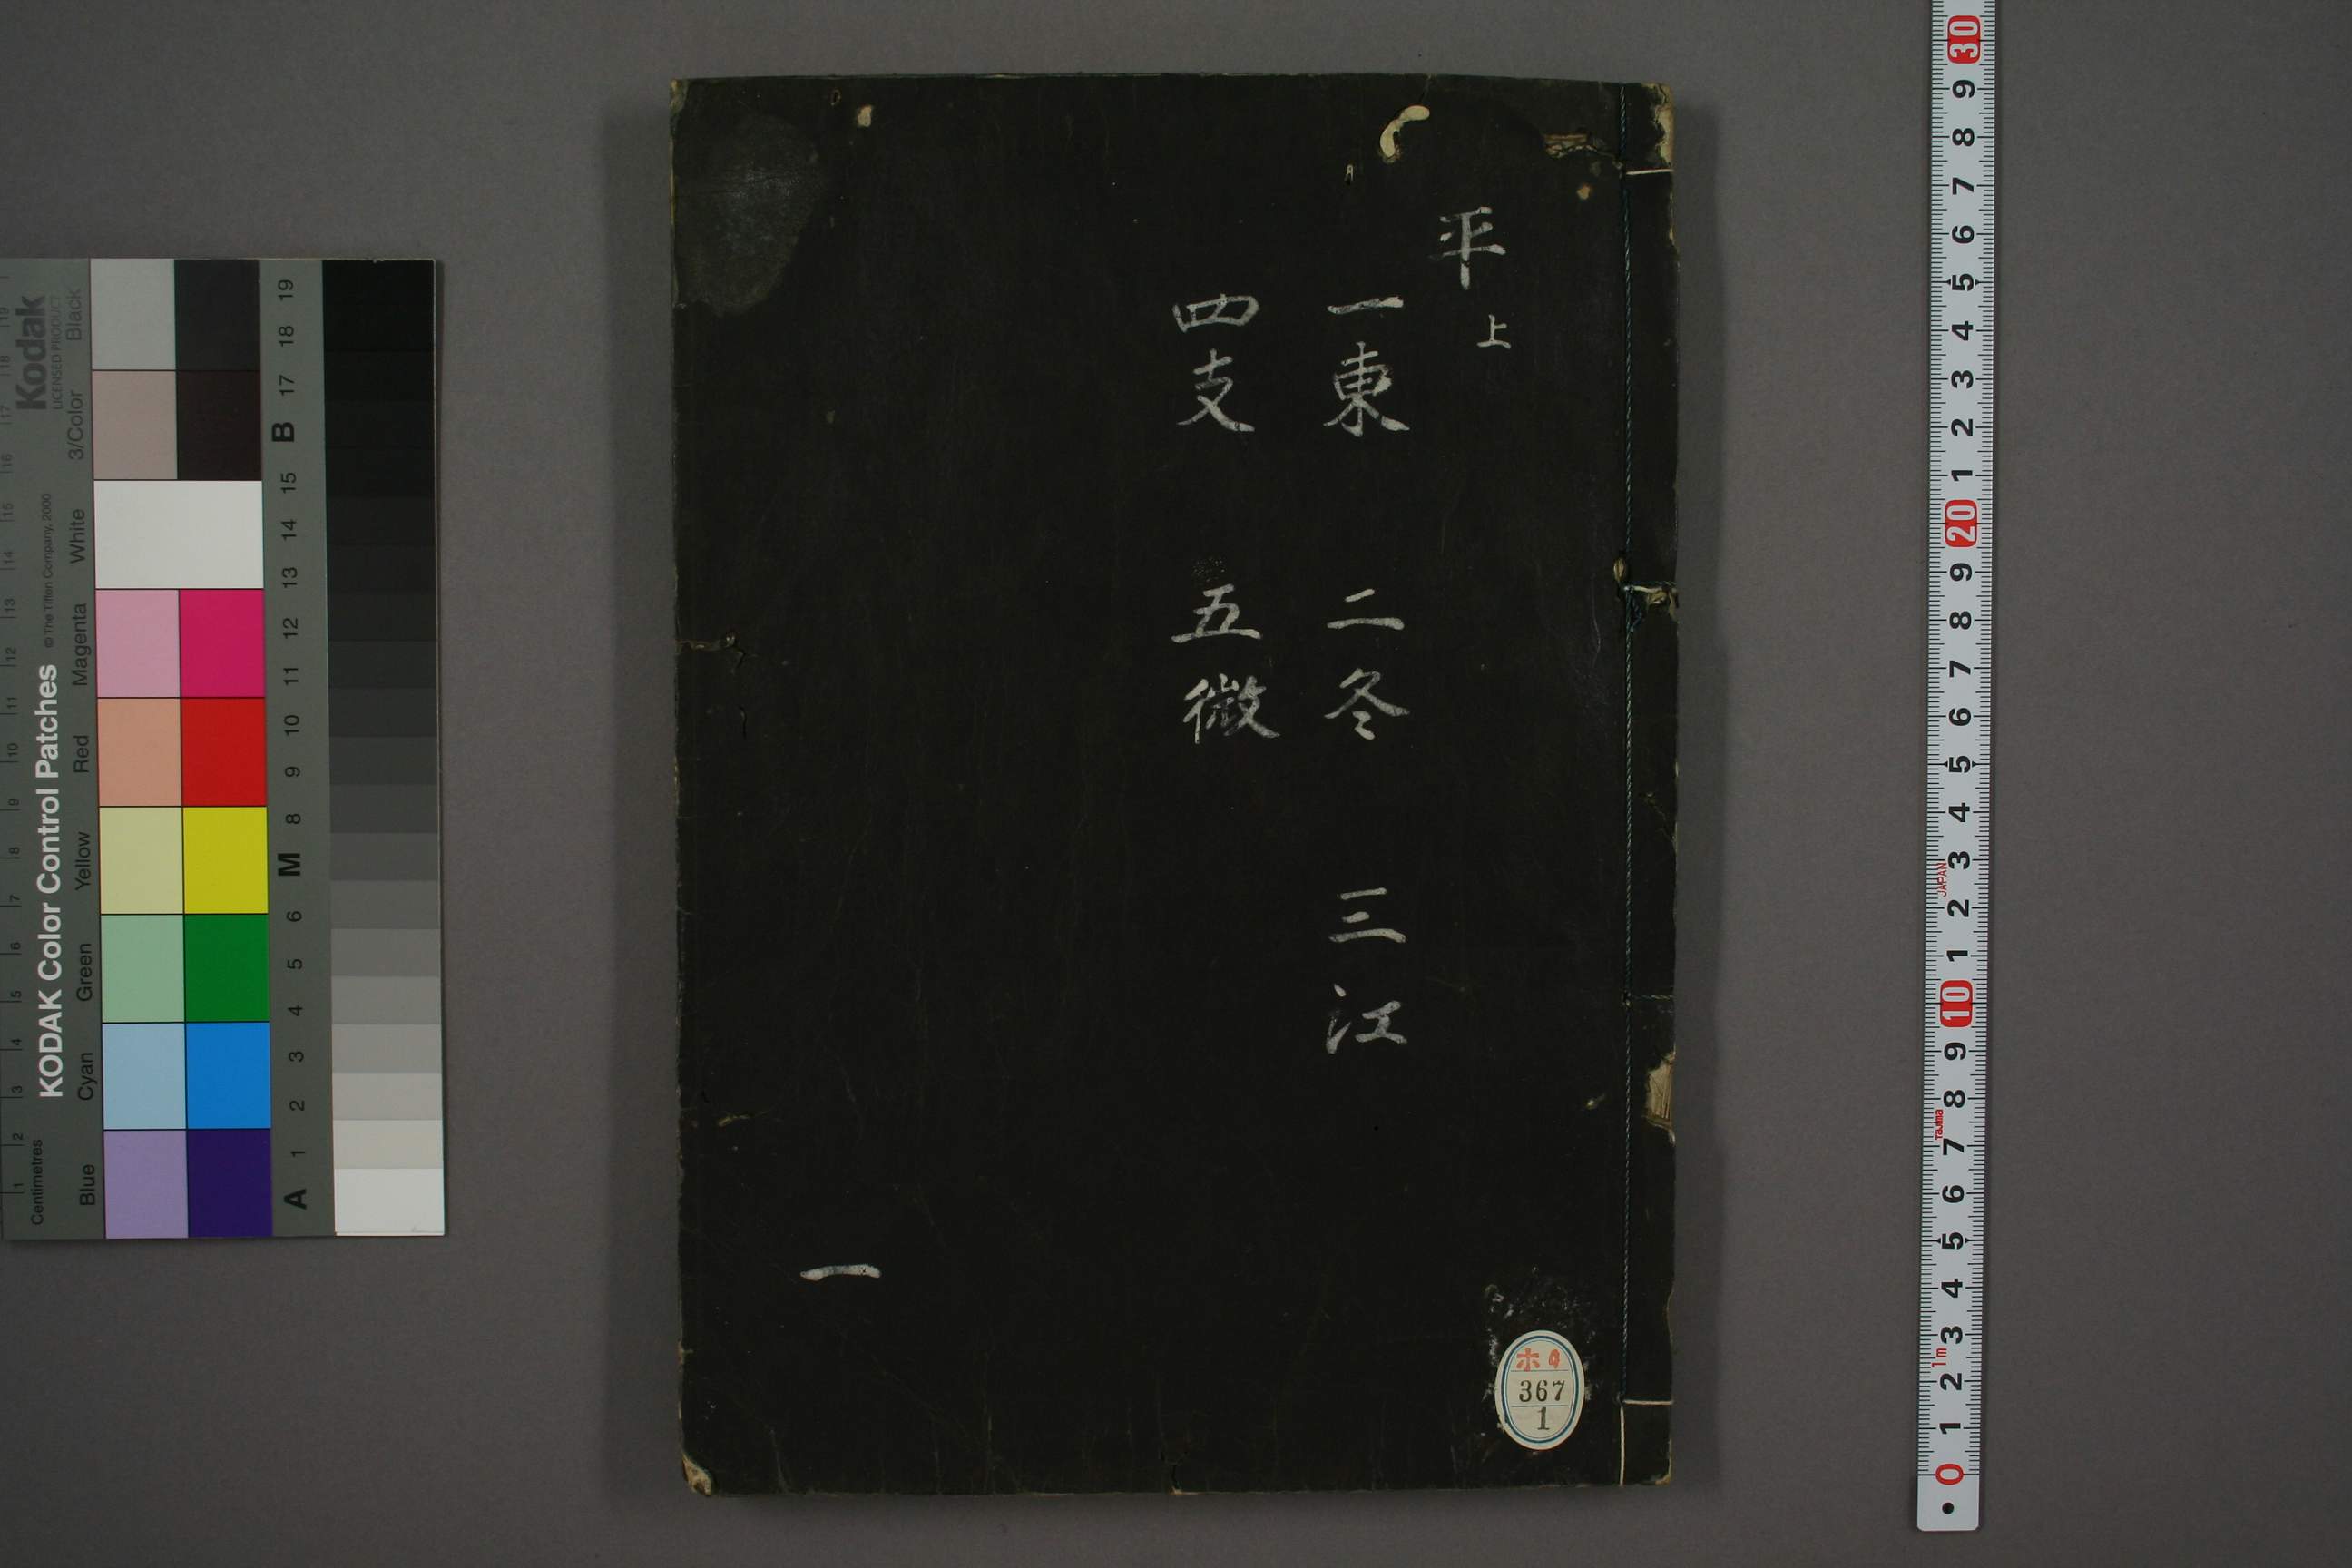 平 上
一東 二冬 三江
四支 五微
一
ホ4
367
1
Kodak
LICENSED PRODUCT
KODAK Color Control Patches © The Tiffen Company, 2000
Centimetres
Blue Cyan Green Yellow Red Magenta White 3/Color Black
1 2 3 4 5 6 7 8 9 10 11 12 13 14 15 16 17 18 19
A 1 2 3 4 5 6 M 8 9 10 11 12 13 14 15 B 17 18 19
0 1 2 3 4 5 6 7 8 9 10 1 2 3 4 5 6 7 8 9 20 1 2 3 4 5 6 7 8 9 30
1m Tajima JAPAN